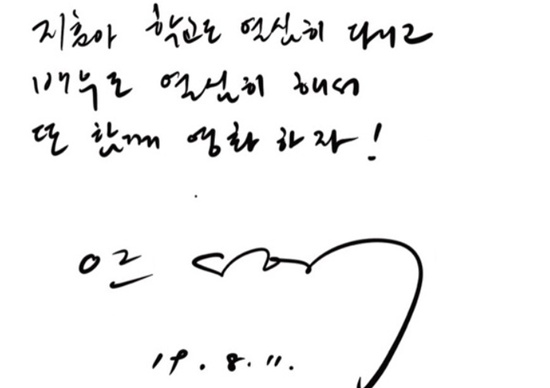 지훈아 학교도 열심히 다니고
배우도 열심히 해서
또 함께 영화 하자!
19. 8. 11.